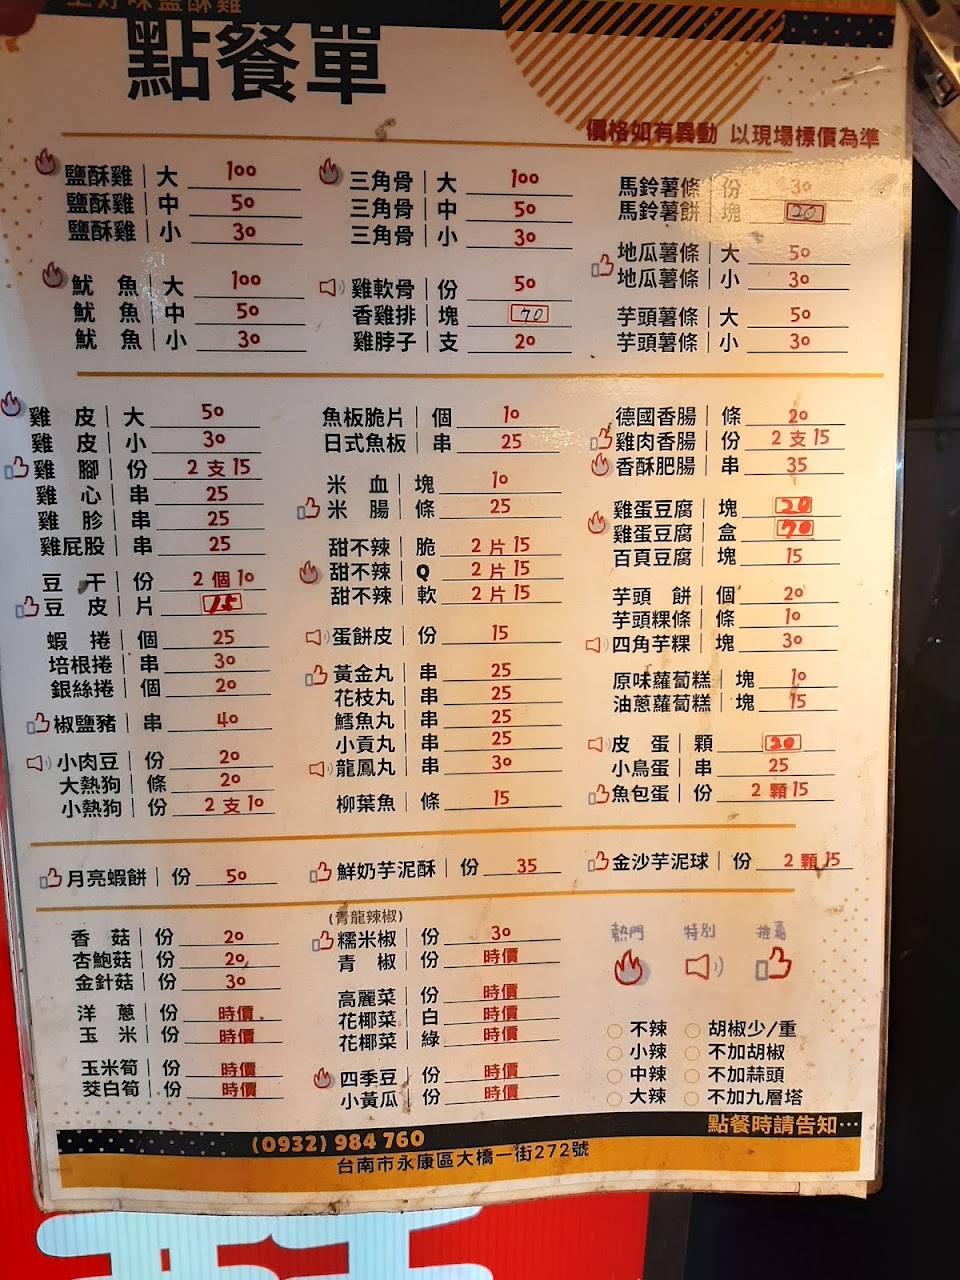 上好味鹽酥雞
點餐單
價格如有異動 以現場標價為準
鹽酥雞 | 大 100
鹽酥雞 | 中 50
鹽酥雞 | 小 30
魷 魚 | 大 100
魷 魚 | 中 50
魷 魚 | 小 30
三角骨 | 大 100
三角骨 | 中 50
三角骨 | 小 30
雞軟骨 | 份 50
香雞排 | 塊 70
雞脖子 | 支 20
馬鈴薯條 | 份 30
馬鈴薯餅 | 塊 20
地瓜薯條 | 大 50
地瓜薯條 | 小 30
芋頭薯條 | 大 50
芋頭薯條 | 小 30
雞 皮 | 大 50
雞 皮 | 小 30
雞 腳 | 份 2支15
雞 心 | 串 25
雞 胗 | 串 25
雞屁股 | 串 25
豆 干 | 份 2個10
豆 皮 | 片 15
蝦 捲 | 個 25
培根捲 | 串 30
銀絲捲 | 個 20
椒鹽豬 | 串 40
小肉豆 | 份 20
大熱狗 | 條 20
小熱狗 | 份 2支10
魚板脆片 | 個 10
日式魚板 | 串 25
米 血 | 塊 10
米 腸 | 條 25
甜不辣 | 脆 2片15
甜不辣 | Q 2片15
甜不辣 | 軟 2片15
蛋餅皮 | 份 15
黃金丸 | 串 25
花枝丸 | 串 25
鱈魚丸 | 串 25
小貢丸 | 串 25
龍鳳丸 | 串 30
柳葉魚 | 條 15
德國香腸 | 條 20
雞肉香腸 | 份 2支15
香酥肥腸 | 串 35
雞蛋豆腐 | 塊 20
雞蛋豆腐 | 盒 70
百頁豆腐 | 塊 15
芋頭 餅 | 個 20
芋頭粿條 | 條 10
四角芋粿 | 塊 30
原味蘿蔔糕 | 塊 10
油蔥蘿蔔糕 | 塊 15
皮 蛋 | 顆 20
小鳥蛋 | 串 25
魚包蛋 | 份 2顆15
月亮蝦餅 | 份 50
鮮奶芋泥酥 | 份 35
金沙芋泥球 | 份 2顆15
香 菇 | 份 20
杏鮑菇 | 份 20
金針菇 | 份 30
洋 蔥 | 份 時價
玉 米 | 份 時價
玉米筍 | 份 時價
茭白筍 | 份 時價
(青龍辣椒)
糯米椒 | 份 30
青 椒 | 份 時價
高麗菜 | 份 時價
花椰菜 | 白 時價
花椰菜 | 綠 時價
四季豆 | 份 時價
小黃瓜 | 份 時價
熱門 特別 推薦
不辣 胡椒少/重
小辣 不加胡椒
中辣 不加蒜頭
大辣 不加九層塔
點餐時請告知…
(0932) 984 760
台南市永康區大橋一街272號